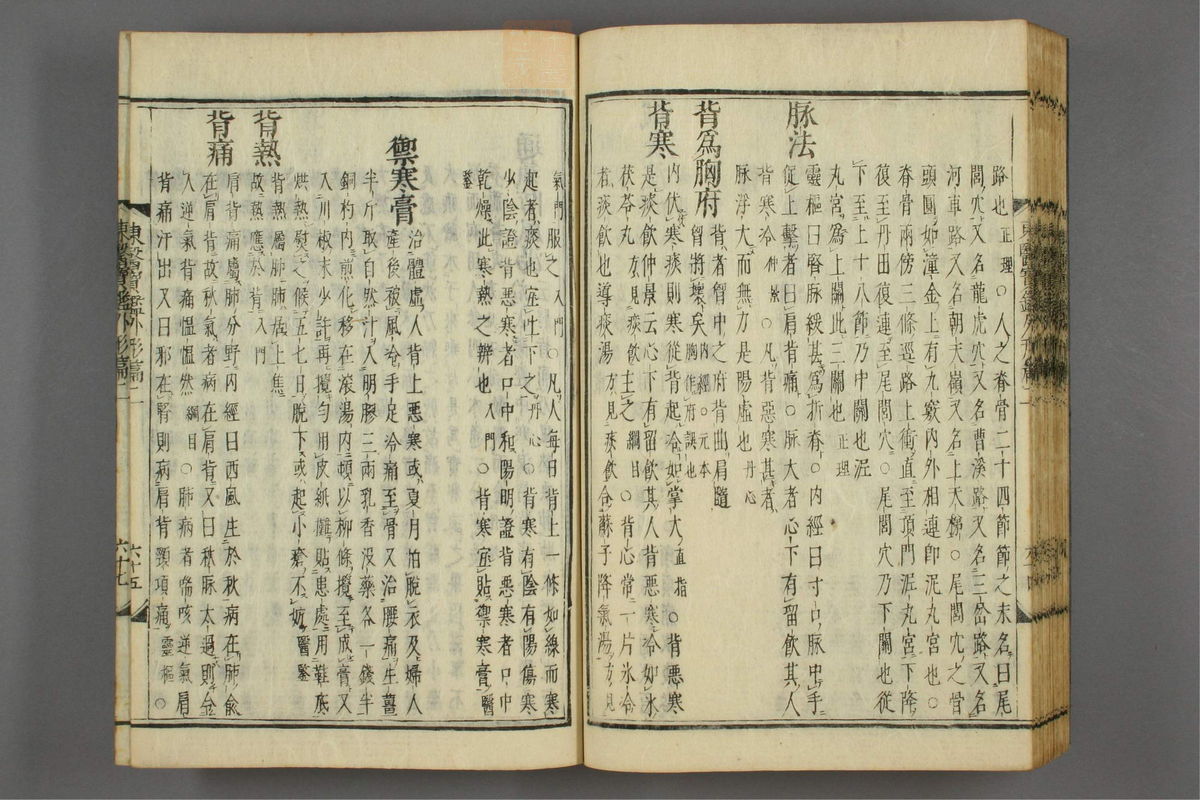 路也正理○人之脊骨二十四節節之末名曰尾
閭穴又名龍虎穴又名曹溪路又名三岔路又名
河車路又名朝天嶺又名上天梯○尾閭穴之骨
頭圓如潼金上有九竅內外相連卽泥丸宮也○
脊骨兩傍三條逕路上衝直至頂門泥丸宮下降
復至丹田復連至尾閭穴○尾閭穴乃下關也從
下至上十八節乃中關也泥
丸宮爲上關此三關也正理
脉法
靈樞曰腎脉緩甚爲折脊○內經曰寸口脉中手
促上擊者曰肩背痛○脉大者心下有留飮其人
背寒冷仲景○凡背惡寒甚者
脉浮大而無力是陽虛也丹心
背爲胸府
背者胸中之府背曲肩隨
府將壞矣內經○元本
胸作府誤也
背寒
內伏寒痰則寒從背起冷如掌大直指○背惡寒
是痰飮仲景云心下有留飮其人背惡寒冷如氷
茯苓丸方見痰飮主之綱目○背心常一片氷冷
者痰飮也導痰湯方見痰飮合蘇子降氣湯方見
氣門服之入門○凡人每日背上一條如線而寒
起者痰也宜吐下之丹心○背寒有陰有陽傷寒
少陰證背惡寒者口中和陽明證背惡寒者口中
乾燥此寒熱之辨也入門○背寒宜貼禦寒膏醫
鑒
禦寒膏
治體虛人背上惡寒或夏月怕脫衣及婦人
產後被風冷手足冷痛至骨又治腰痛生薑
半斤取自然汁入明膠三兩乳香沒藥各一錢半
銅杓內煎化移在滾湯內頓以柳條攪至成膏又
入川椒末少許再攪勻用皮紙攤貼患處用鞋底
烘熱熨之候五七日脫下或起小瘡不妨醫鑒
背熱
背熱屬肺肺居上焦
故熱應於背入門
背痛
肩背痛屬肺分野內經曰西風生於秋病在肺兪
在肩背故秋氣者病在肩背又曰秋脉太過則令
人逆氣背痛慍慍然綱目○肺病者喘咳逆氣肩
背痛汗出又曰邪在腎則病肩背頸項痛靈樞○
東醫寶鑑外形篇二
六十五